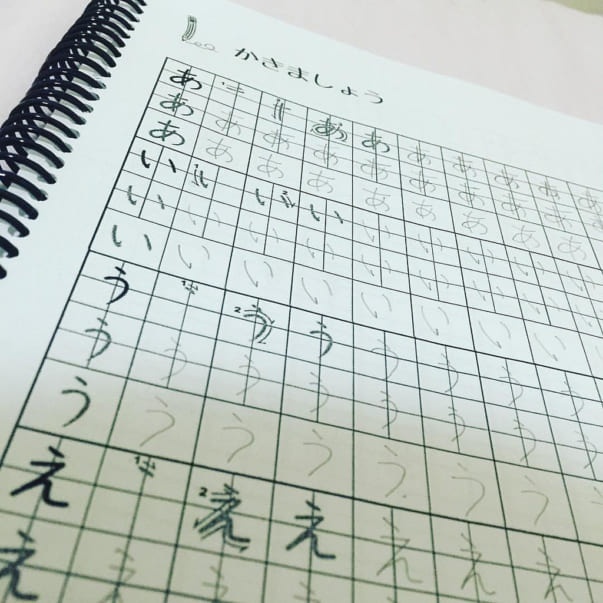 かきましょう
あ あ あ あ あ あ あ あ
あ あ あ あ あ あ あ あ あ あ
あ あ あ あ あ あ あ あ あ
い い い い い い い い
い い い い い い い い い
い い い い い い い い
う 1 2 う う う う う う う
う う う う う う う う
う う う う う う う
え 1 2 え え え え え
え え え え